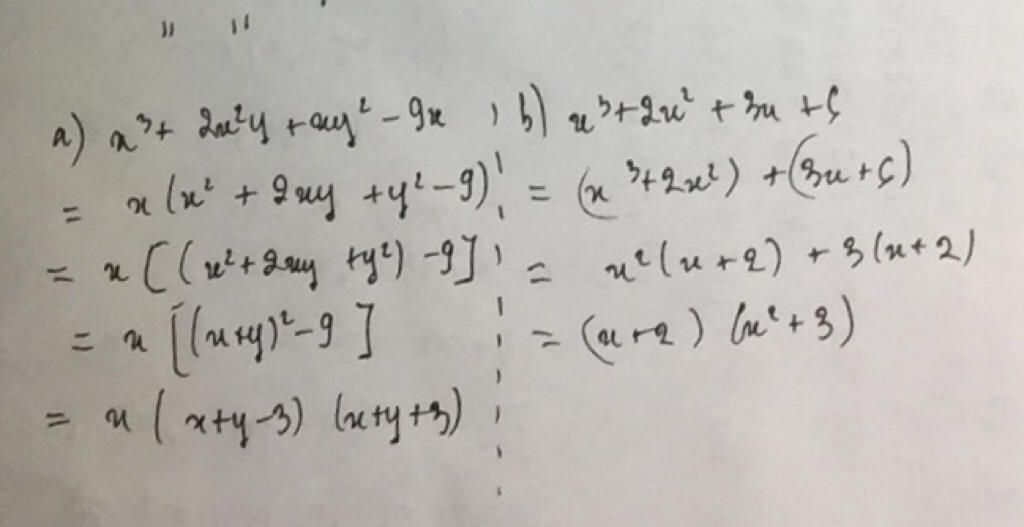 " "
a) x³ + 2x²y + xy² - 9x
= x (x² + 2xy + y² - 9)
= x [(x² + 2xy + y²) - 9]
= x [(x+y)² - 9]
= x (x+y-3) (x+y+3)
b) x³ + 2x² + 3x + 6
= (x³ + 2x²) + (3x + 6)
= x² (x + 2) + 3 (x + 2)
= (x + 2) (x² + 3)